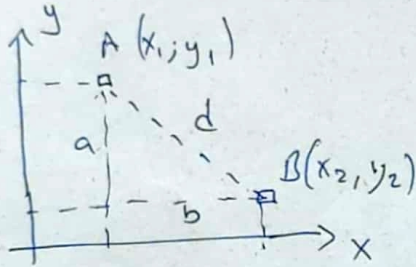 y
A (x₁; y₁)
a
d
B(x₂, y₂)
b
x